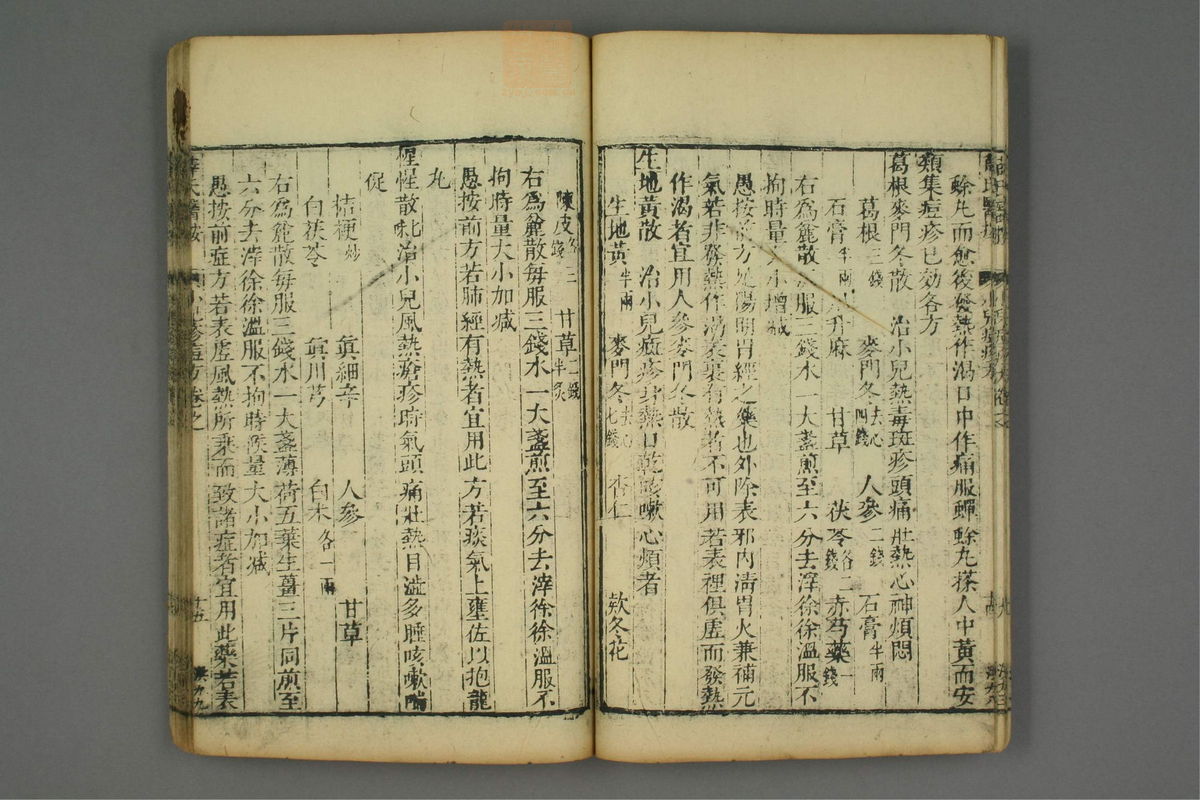 餘丸而愈後發熱作渴口中作痛服蟬蜍丸搽人中黃而安
類集痘疹已効各方
葛根麥門冬散 治小兒熱毒斑疹頭痛壯熱心神煩悶
葛根三錢 麥門冬去心四錢 人參二錢 石膏半兩
石膏半兩 升麻 甘草 茯苓各二錢 赤芍藥一錢
右爲麄散 服三錢水一大盞煎至六分去滓徐徐溫服不
拘時量大小增減
愚按前方足陽明胃經之藥也外除表邪內清胃火兼補元
氣若非發熱作渴表裏有熱者不可用若表裡俱虛而發熱
作渴者宜用人參麥門冬散
生地黃散 治小兒瘢疹身熱口乾咳嗽心煩者
生地黃半兩 麥門冬去心七錢 杏仁 欵冬花
陳皮各三錢 甘草二錢半炙
右爲麄散每服三錢水一大盞煎至六分去滓徐徐溫服不
拘時量大小加減
愚按前方若肺經有熱者宜用此方若痰氣上壅佐以抱龍
丸
惺惺散 治小兒風熱瘡疹時氣頭痛壯熱目澁多睡咳嗽喘
促
桔梗炒 眞細辛 人參 甘草
白茯苓 眞川芎 白朮各一兩
右爲麄散每服三錢水一大盞薄荷五葉生薑三片同煎至
六分去滓徐徐溫服不拘時候量大小加減
愚按前症方若表虛風熱所乘而致諸症者宜用此藥若表
薛氏醫按 卷之 十五